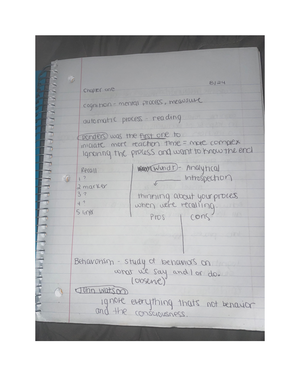 Chapter one
Cognition - mental process,
automatic process - reading
Donders was the first one to
more reaction time = more complex
ignoring the process and want to know the end
Wundt - Analytical
Introspection
thinking about your process
when were recalling
Pros Cons
1 "
2 marker
3 "
4 "
Behaviorism - study of behaviors on
what we say and/or do
(observe)
John Watson
ignore everything thats not behavior
and the consciousness.